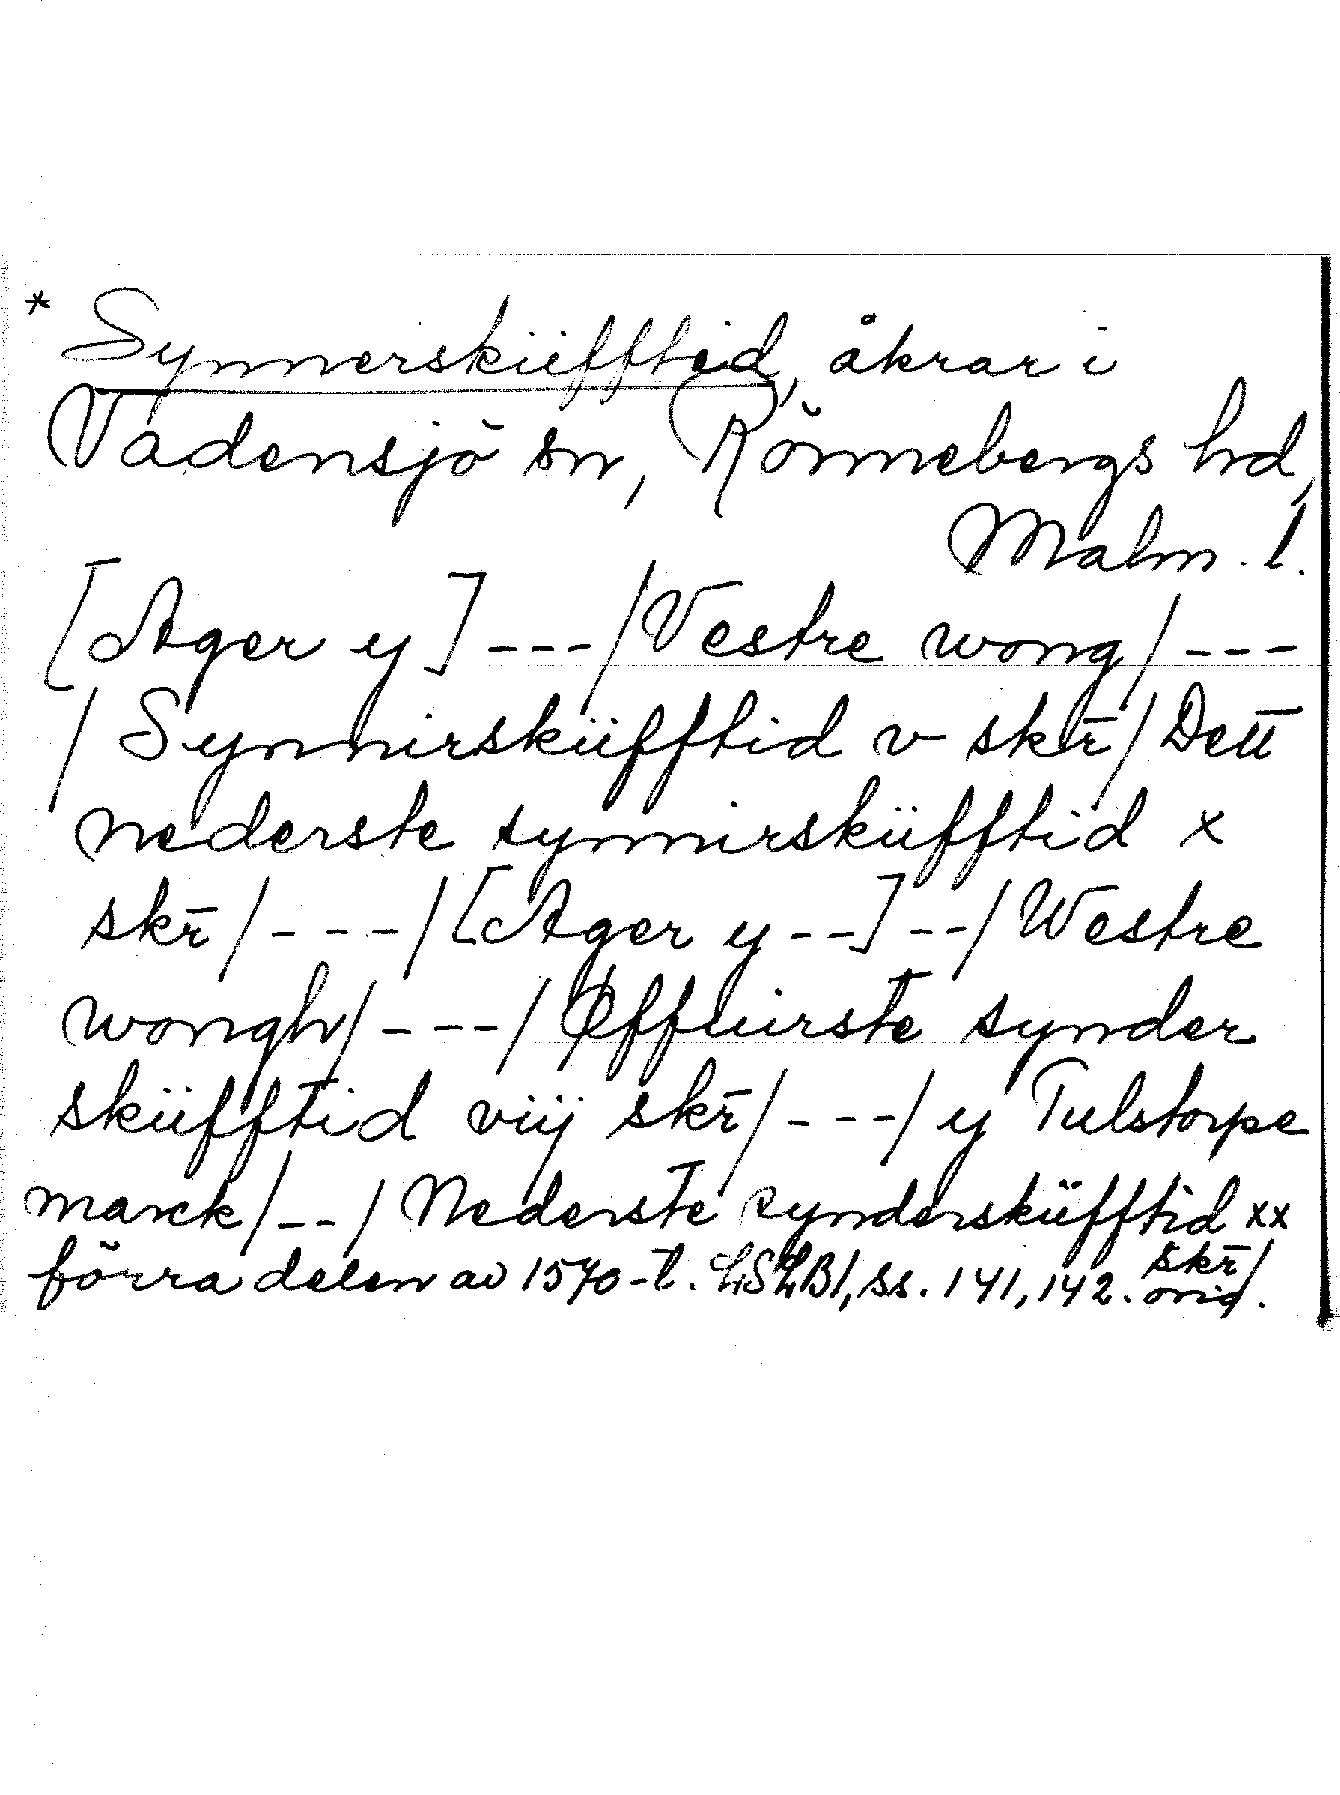 * Synnerskiüfftid, åkrar i
Vadensjö sn, Rönnebergs hd,
Malm. l.
[Ager y] ---/Vestre wong/ ---
/ Synnirskiüfftid v skr̄/ Dett̄
nederste synnirskiüfftid x
skr̄/ ---/[Ager y --] --/ Westre
wongh/ ---/ Øffuirstē synder
skiüfftid viij skr̄/ ---/ y Tulstorpe
marck/ --/ Nederstē synderskiüfftid xx
skr̄/
förra delen av 1570-t. LSLB1, ss. 141, 142. orig.